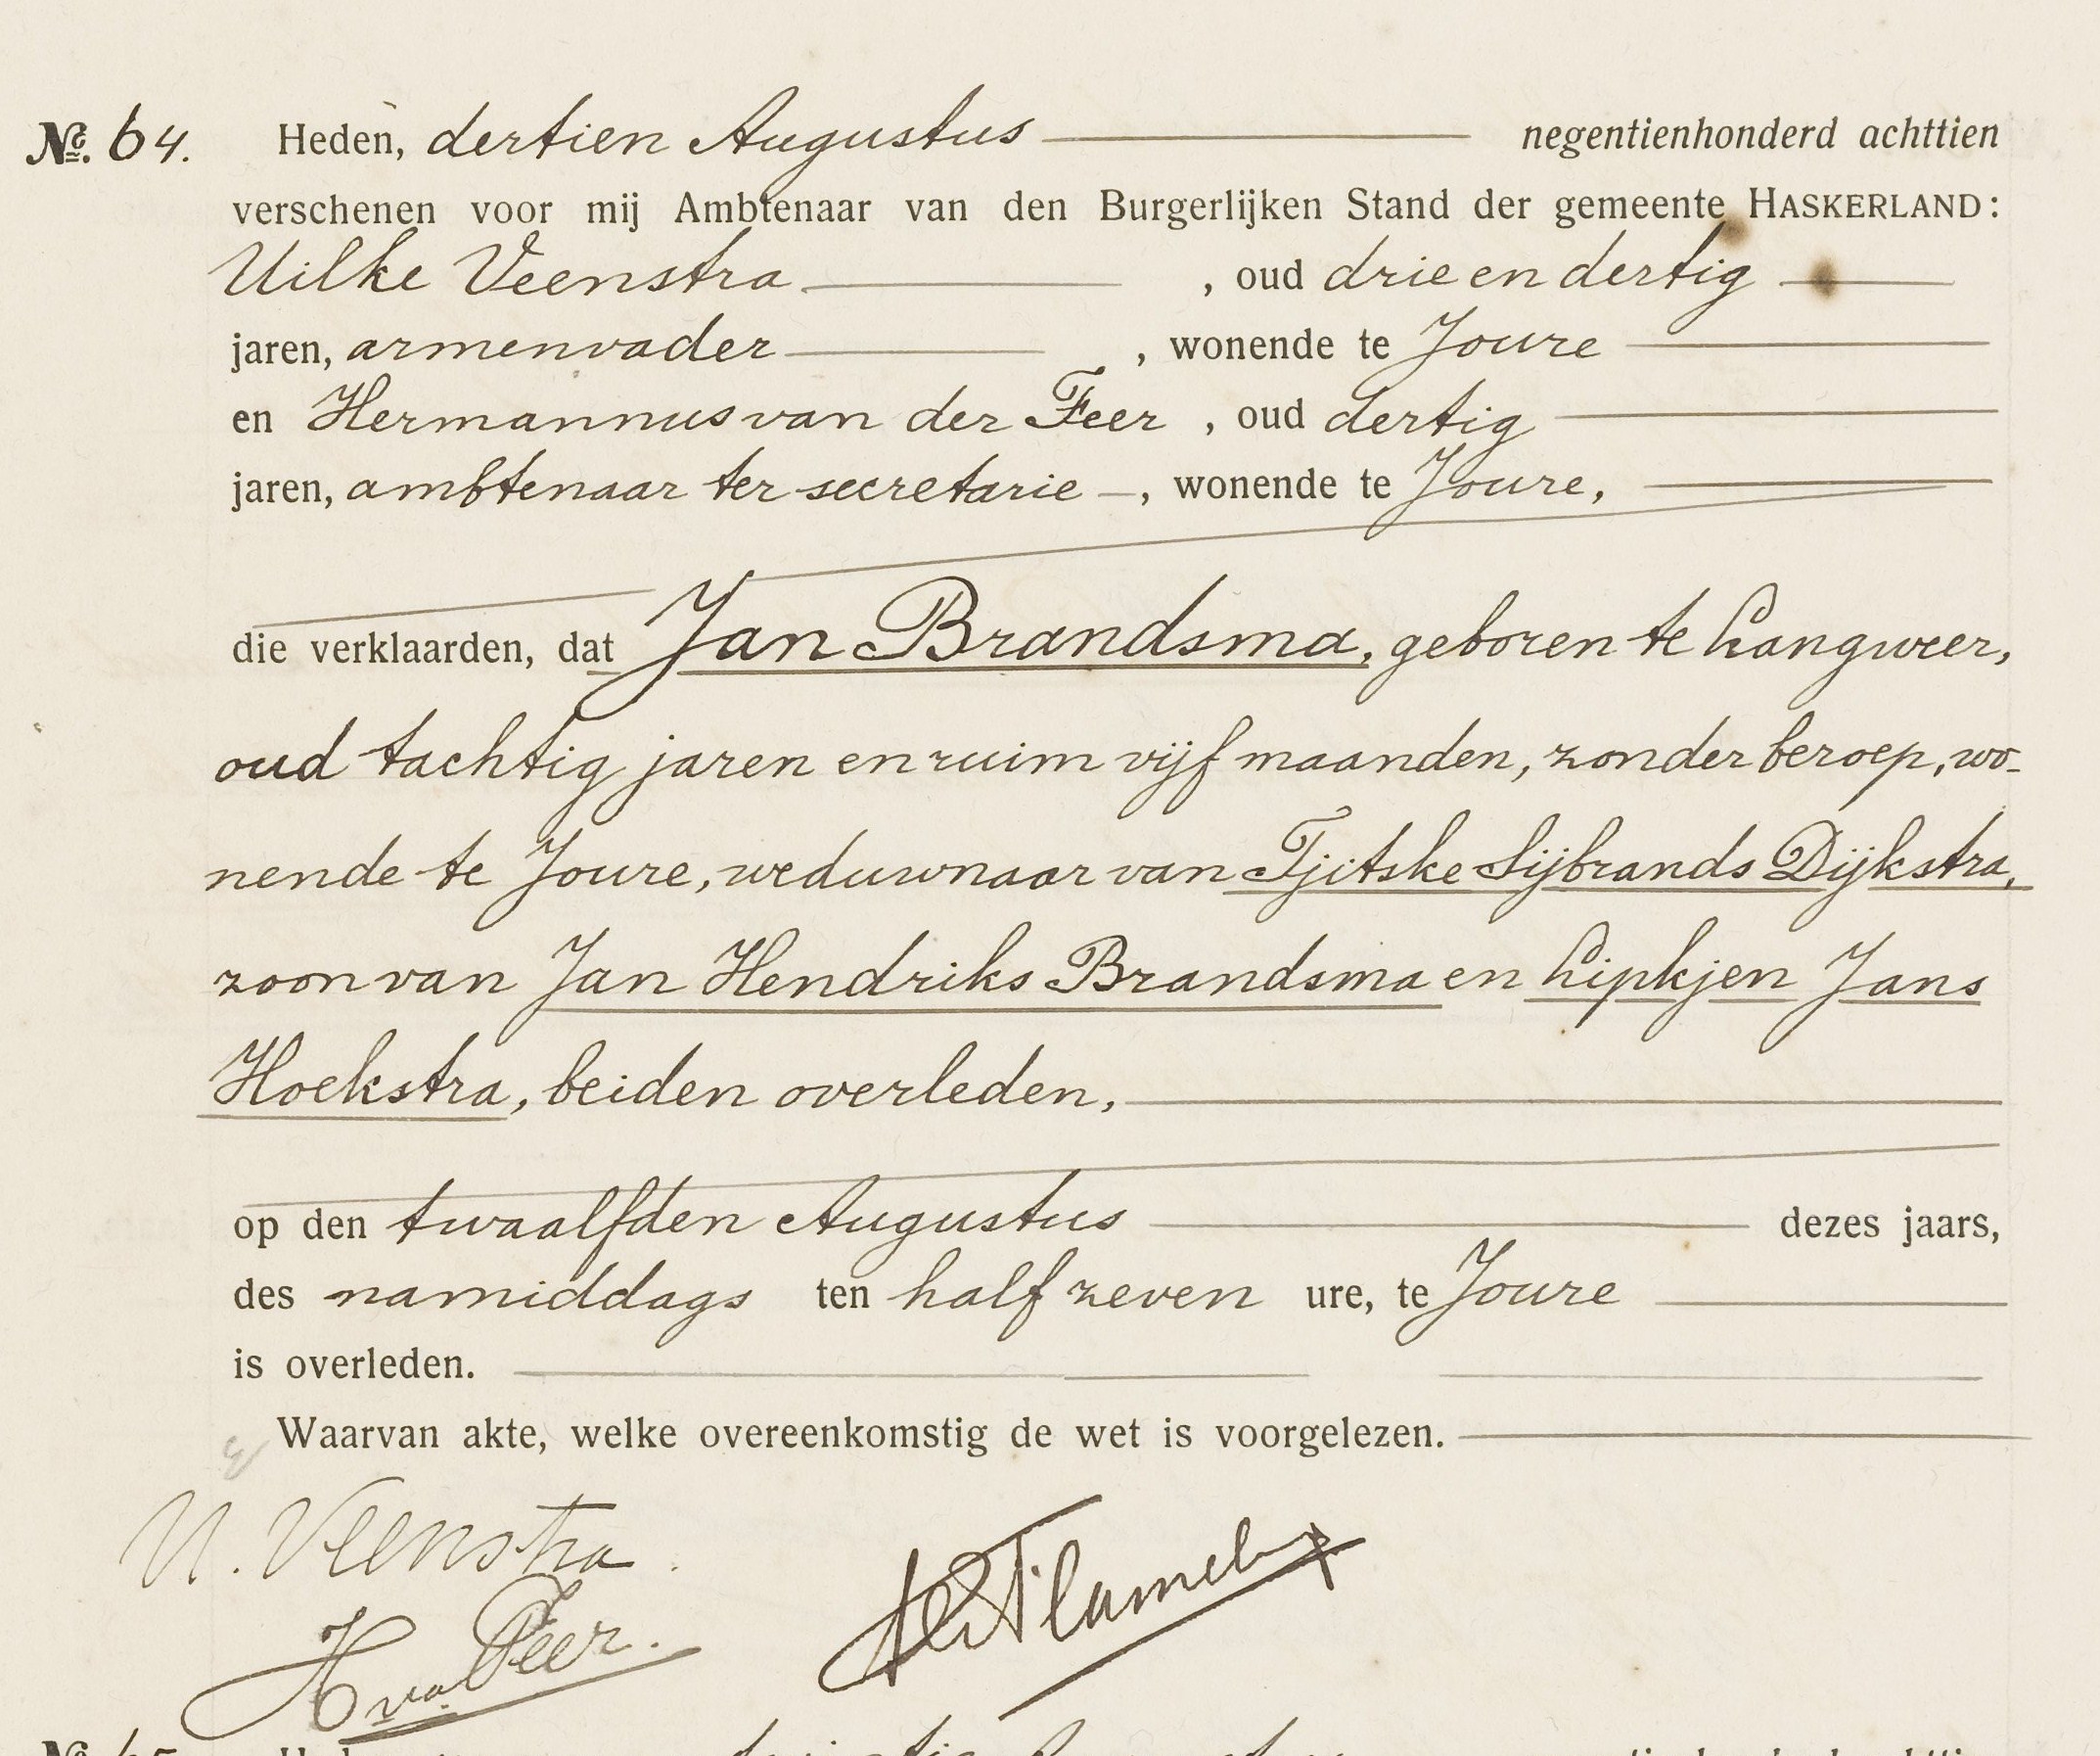 №. 64. Heden, dertien Augustus negentienhonderd achttien
verschenen voor mij Ambtenaar van den Burgerlijken Stand der gemeente HASKERLAND:
Uilke Veenstra , oud drie en dertig
jaren, armenvader , wonende te Joure
en Hermannus van der Feer , oud dertig
jaren, ambtenaar ter secretarie , wonende te Joure,
die verklaarden, dat Jan Brandsma, geboren te Langweer,
oud tachtig jaren en ruim vijf maanden, zonder beroep, wo-
nende te Joure, weduwnaar van Tjitske Sijbrands Dijkstra,
zoon van Jan Hendriks Brandsma en Lipkjen Jans
Hoekstra, beiden overleden,
op den twaalfden Augustus dezes jaars,
des namiddags ten half zeven ure, te Joure
is overleden.
Waarvan akte, welke overeenkomstig de wet is voorgelezen.
U. Veenstra.
H vd Feer.